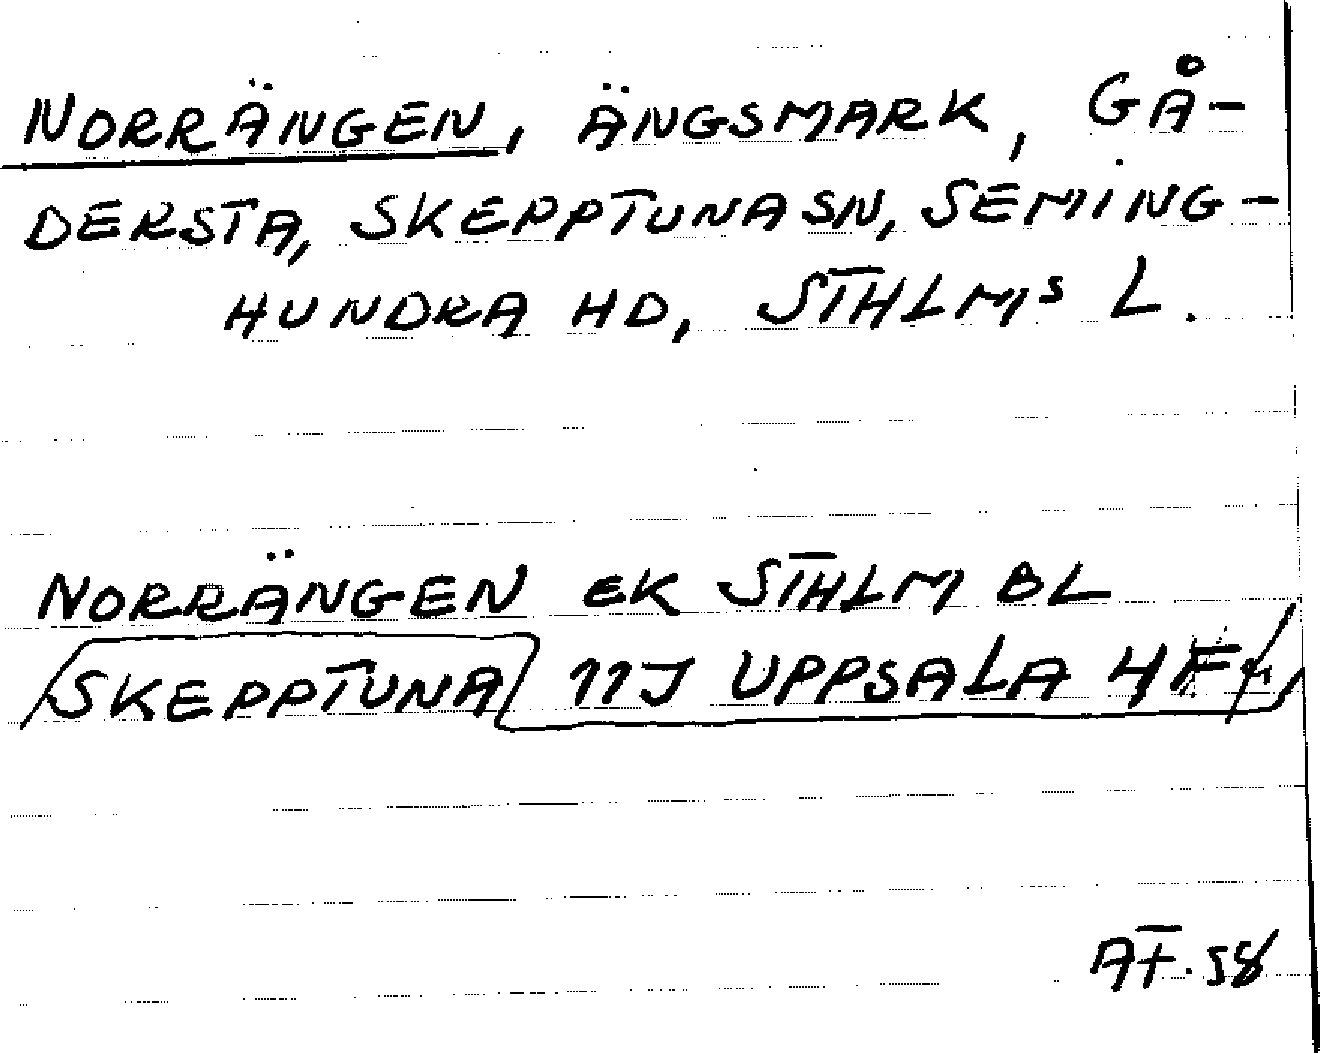 NORRÄNGEN, ÄNGSMARK, GÅ-
DERSTA, SKEPPTUNA SN, SEMING-
HUNDRA HD, STHLMS L.
NORRÄNGEN EK STHLM BL
SKEPPTUNA 11J UPPSALA 4F
AF. 58